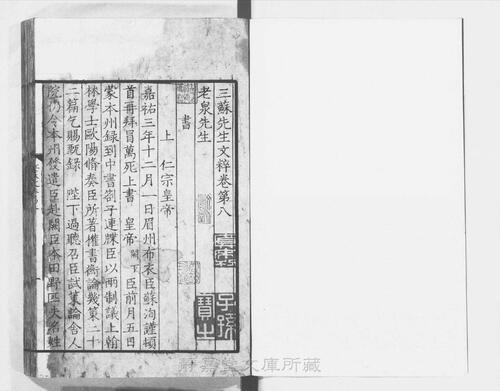 三蘇先生文粹卷第八
老泉先生
書
上　仁宗皇帝
嘉祐三年十二月一日眉州布衣臣蘇洵謹頓
首再拜冒萬死上書　皇帝闕下臣前月五日
蒙本州錄到中書劄子連牒臣以兩制議上翰
林學士歐陽脩奏臣所著權書衡論幾策二十
二篇乞賜甄録　陛下過聽召臣試策論舍人
院仍令本州發遣臣赴闕臣本田野匹夫名姓
子孫
寶之
靜嘉堂文庫所藏